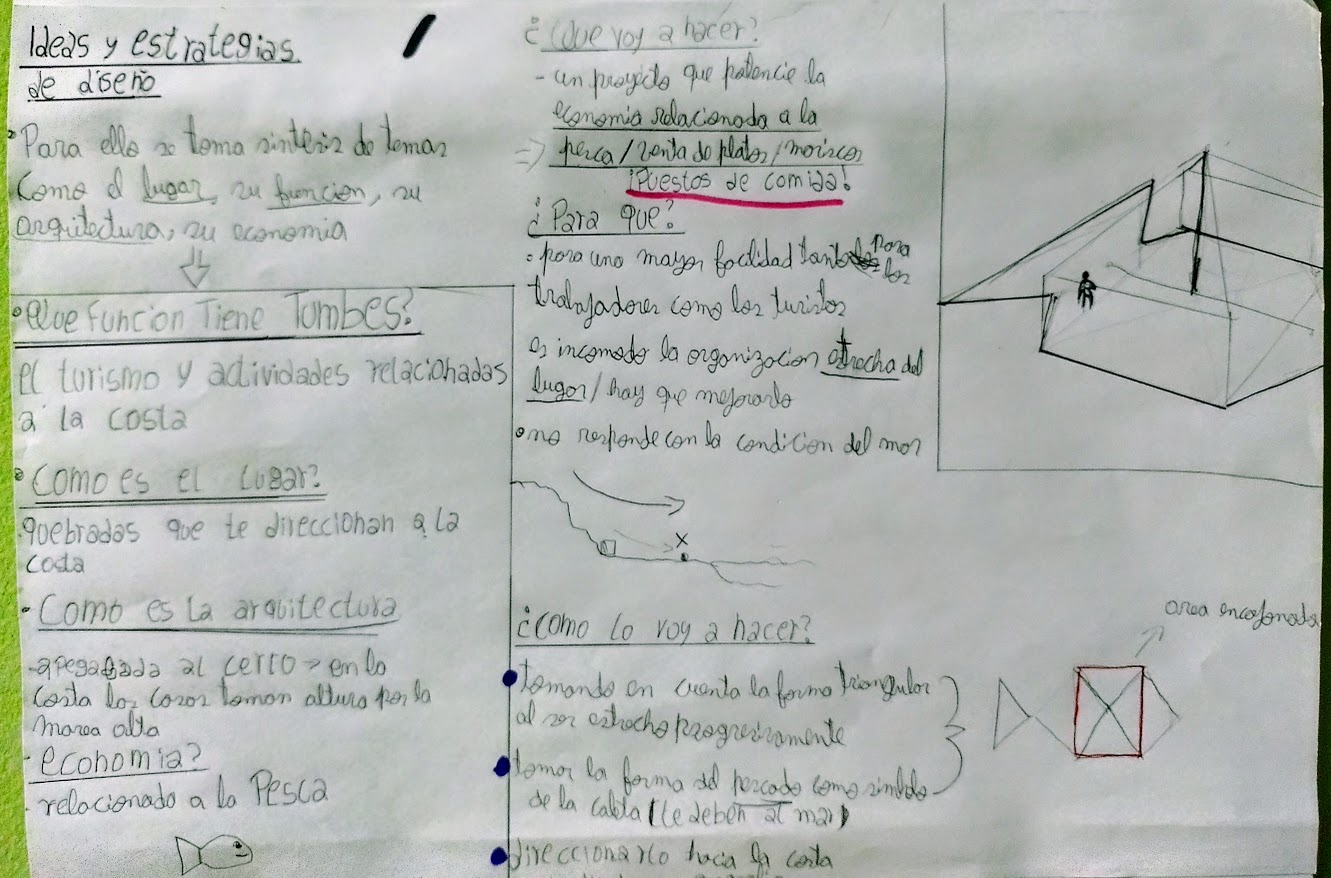 Ideas y estrategias
de diseño
Para ello se toma sintesis de temas
Como el lugar, su funcion, su
arquitectura, su economia
Que funcion Tiene Tumbes?
el turismo y actividades relacionadas
a la costa
Como es el Lugar?
quebradas que te direccionan a la
costa
Como es la arquitectura
apegada al cerro → en la
costa las casas toman altura por la
marea alta
economia?
relacionado a la Pesca
¿Que voy a hacer?
- un proyecto que potencie la
economia relacionada a la
⇒ pesca/venta de platos/mariscos
¡Puestos de comida!
¿Para que?
para una mayor facilidad tanto para
los
trabajadores como los turistas
es incomodo la organizacion estrecha del
lugar/hay que mejorarlo
no responde con la condicion del mar
x
¿Como lo voy a hacer?
tomando en cuenta la forma triangular
al ser estrecho progresivamente
tomar la forma del pescado como simbolo
de la caleta (le deben al mar)
direccionarlo hacia la costa
area encajonada